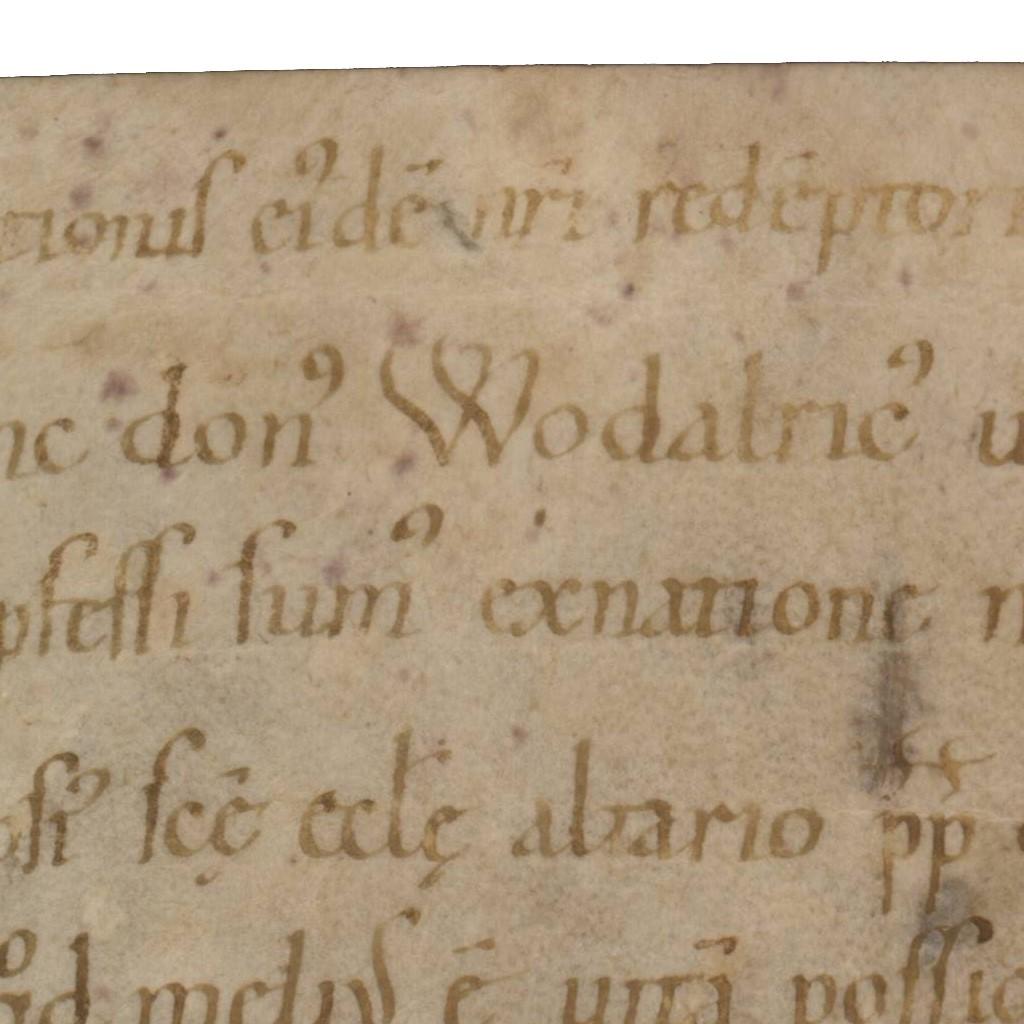 tionis ei᾽dē nr̄i redēptori
nc don᾽ Wodalric᾽ u
pfessi sum᾽ exnatione n
si᾽ scę̄ eccl̄ę altario pp̄
qd meli᾽ ē uitā possi